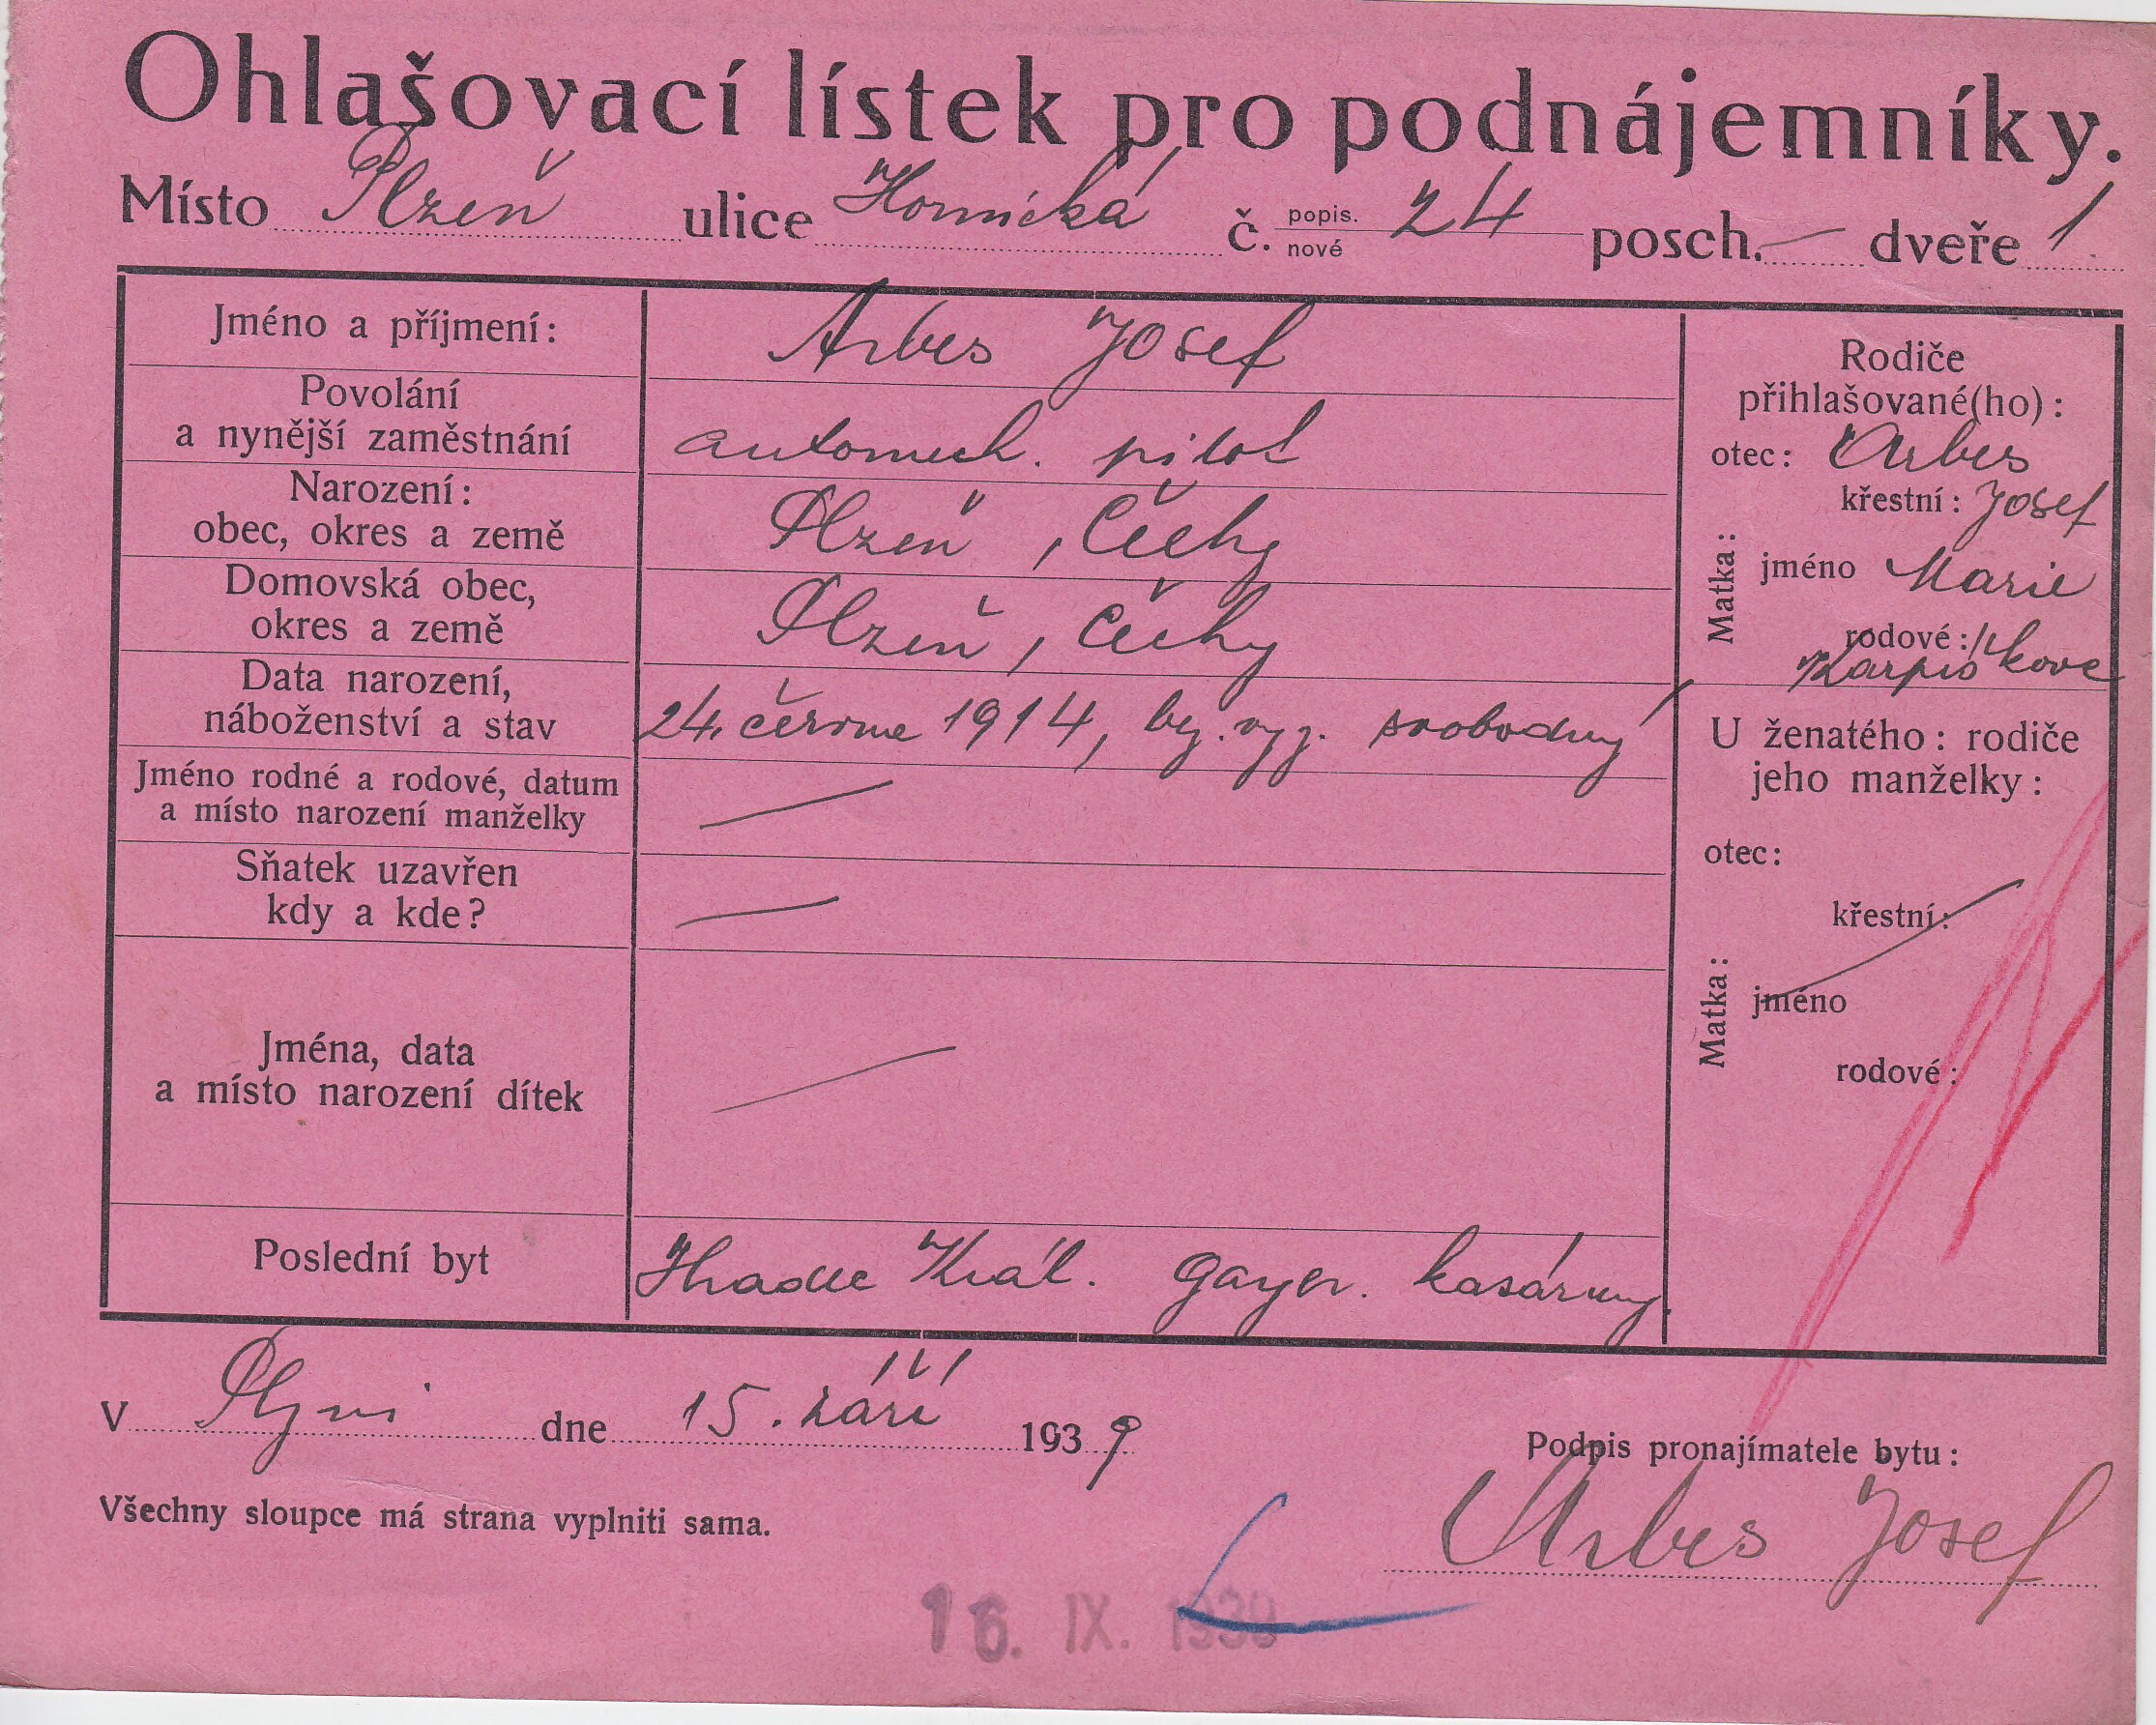 Ohlašovací lístek pro podnájemníky.
Místo Plzeň ulice Hornická č. popis. nové 24 posch. — dveře 1
Jméno a příjmení: Arbes Josef
Povolání a nynější zaměstnání automech. pilot
Narození: obec, okres a země Plzeň, Čechy
Domovská obec, okres a země Plzeň, Čechy
Data narození, náboženství a stav 24. června 1914, bez. vyz. svobodný
Jméno rodné a rodové, datum a místo narození manželky —
Sňatek uzavřen kdy a kde? —
Jména, data a místo narození dítek —
Poslední byt Hradec Král. Gayer. kasárny.
Rodiče
přihlašované(ho):
otec: Arbes
křestní: Josef
Matka: jméno Marie
rodové:
U ženatého: rodiče
jeho manželky:
otec:
křestní:
Matka: jméno
rodové:
V Plzni dne 15. září 1939
Podpis pronajímatele bytu:
Všechny sloupce má strana vyplniti sama.
Arbes Josef
16. IX. 1939